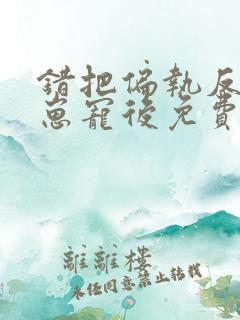 錯把偏執反
崽寵後免費
離離樓
未任同意禁止轉載